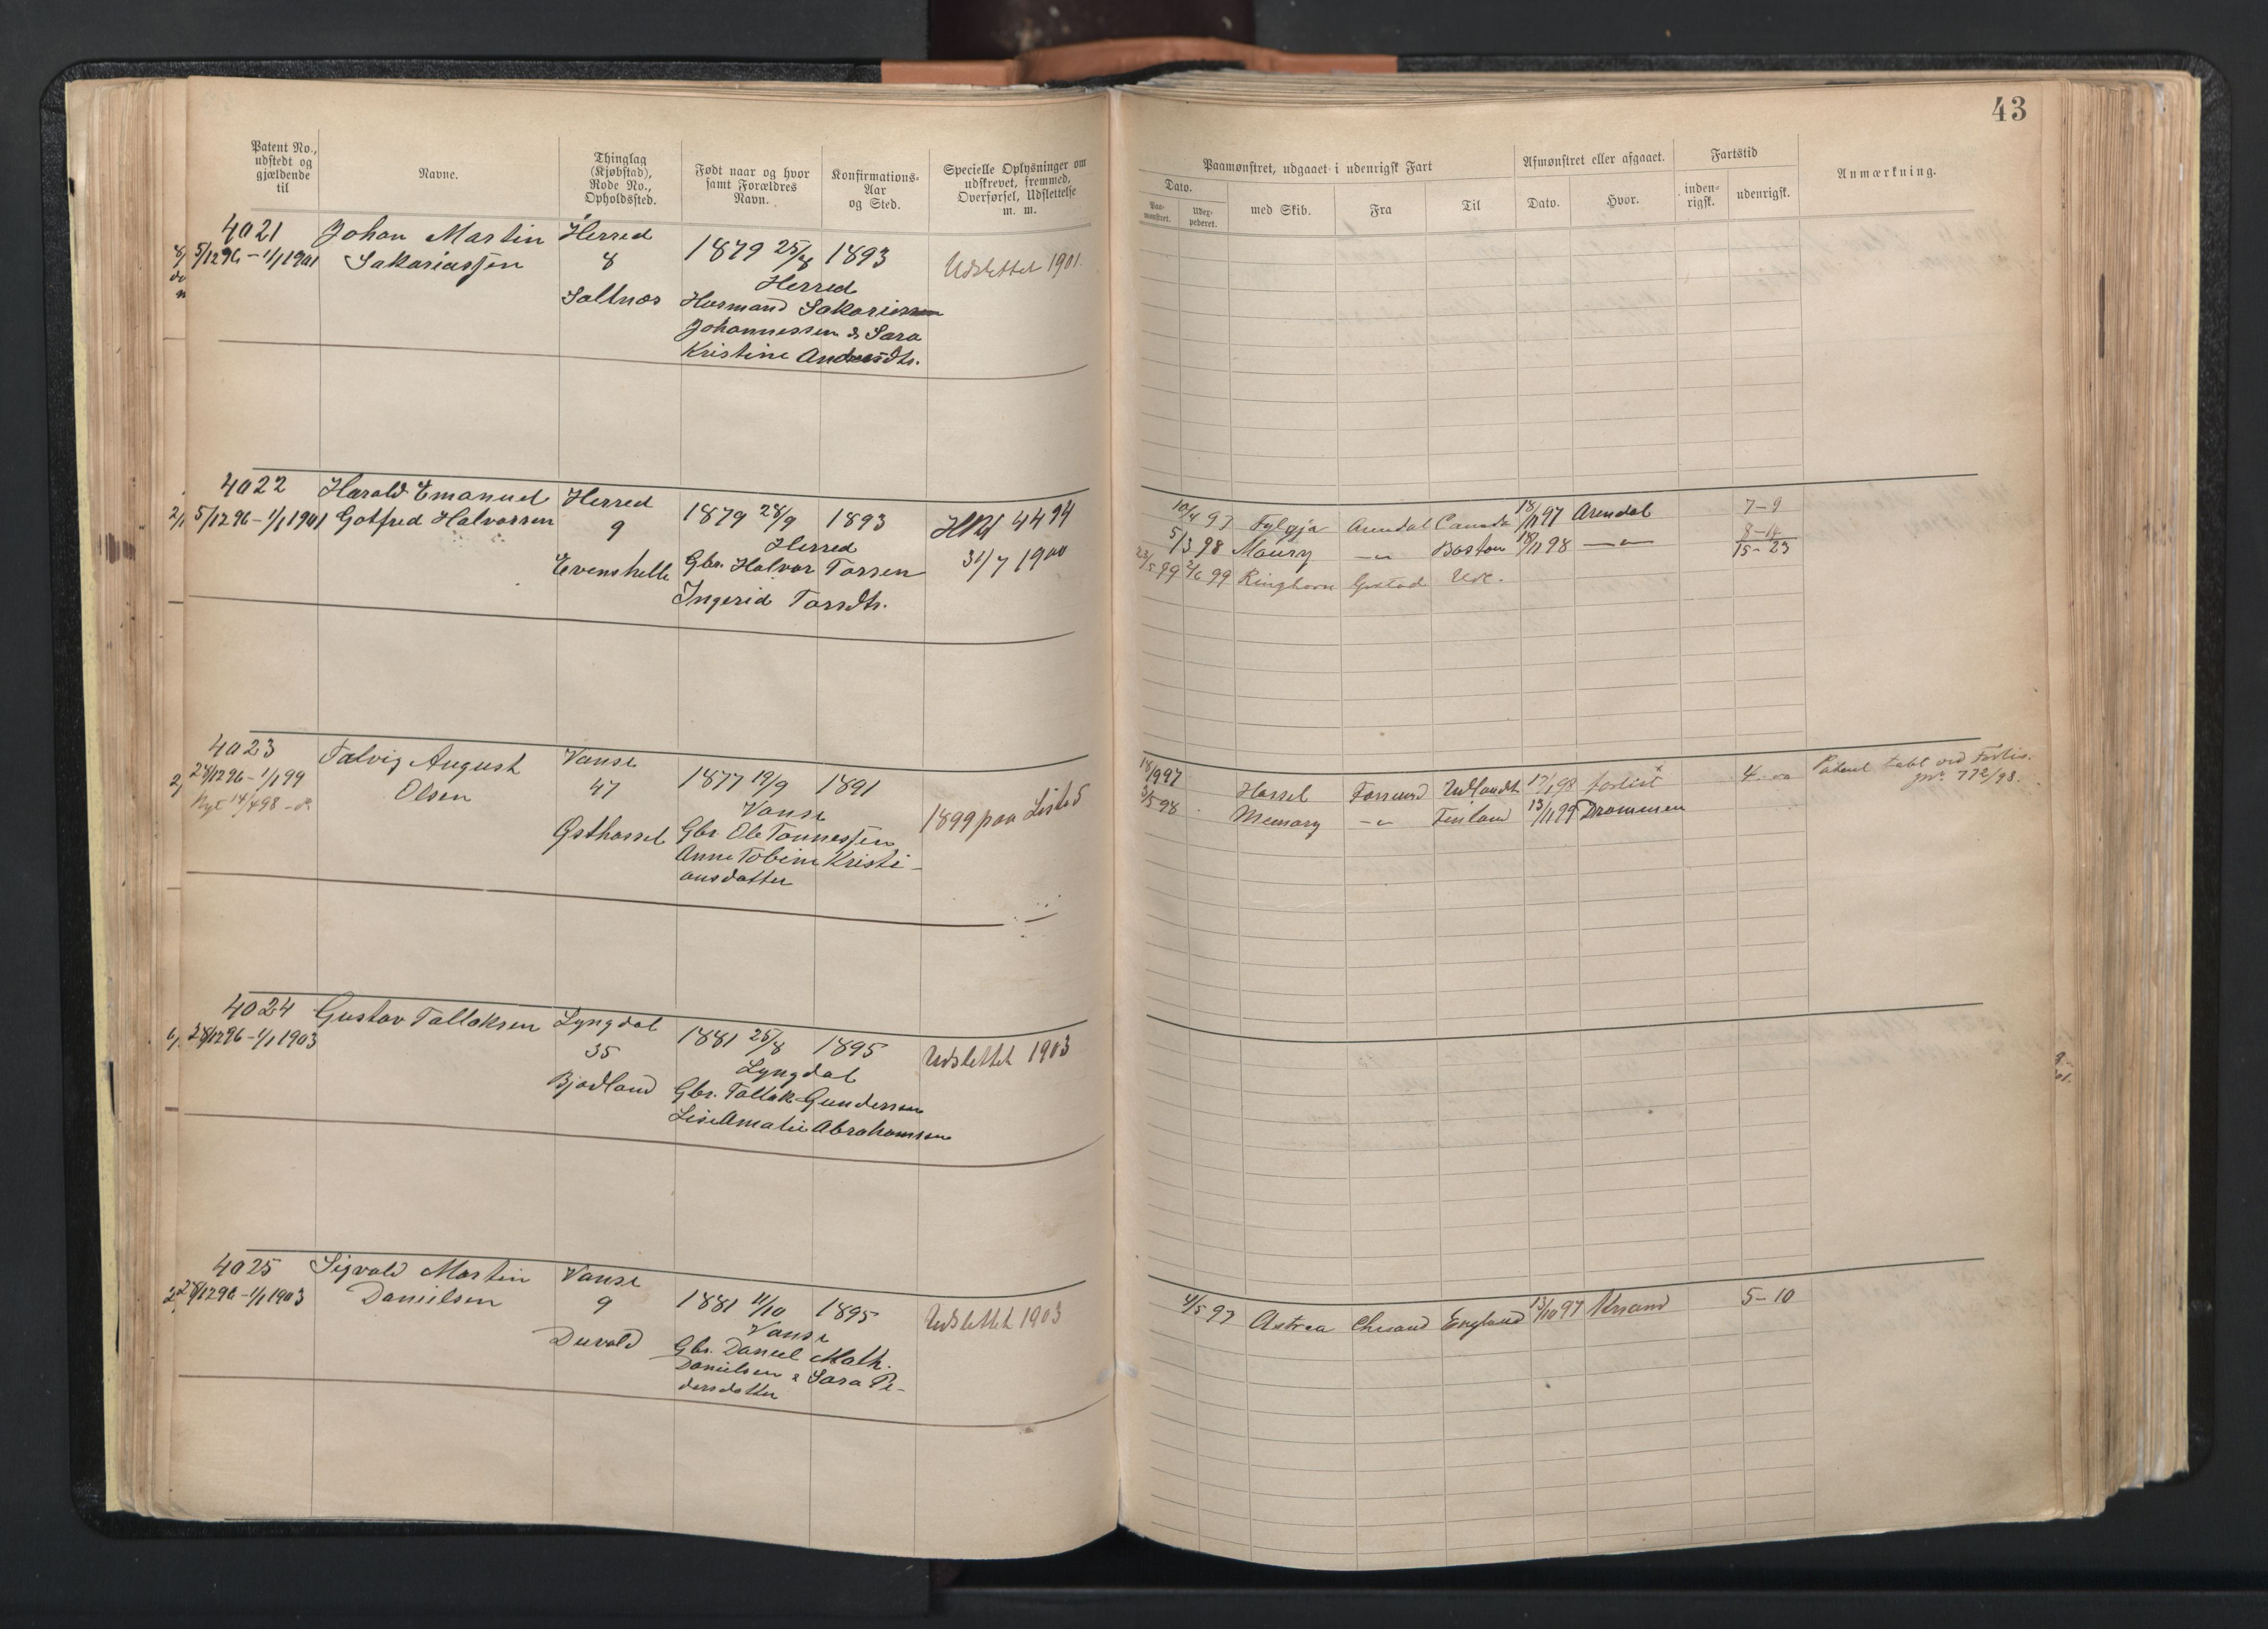 43
Patent No., udstedt og gjældende til
Navne.
Thinglag (Kjøbstad), Rode No., Opholdssted.
Født naar og hvor samt Forældres Navn.
Konfirmations-Aar og Sted.
Specielle Oplysninger om udskrevet, fremmed, Overførsel, Udslettelse m. m.
Paamønstret, udgaaet i udenrigsk Fart
Dato.
Paa-mønstret.
Uder-pederet.
med Skib.
Fra
Til
Afmønstret eller afgaaet.
Dato.
Hvor.
Fartstid
inden-rigsk.
udenrigsk.
Anmærkning.
4021
5/12 96 - 1/1 1901
Johan Martin
Sakariassen
Herred
8
Saltnæs
1879 25/8 1893
Herred
Husmand Sakariassen
Johannessen & Sara
Kristine Andersdtr.
Udslettet 1901.
4022
5/12 96 - 1/1 1901
Harald Emanuel
Gotfred Halvorsen
Herred
9
Evenshelle
1879 28/9 1893
Herred
Gbr. Halvor Torsen
Ingerid Torsdtr.
4494
31/7 1900
10/4 97 Fylgja Arendal Canada 18/11 97 Arendal 7-9
5/3 98 Maury -"- Boston 18/11 98 -"- 8-14
15-23
23/5 99 2/6 99 Ringhorn Grstad Udl.
4023
28/12 96 - 1/1 99
Nyt 14/4 98 - do.
Falvig August
Olsen
Vanse
47
Østhassel
1877 19/9 1891
Vanse
Gbr. Ole Tønnessen
Anne Tobine Kristi-
ansdatter
1899 paa Listed
18/9 97 Hassel Farsund Udlandt 17/1 98 forlist 4
3/5 98 Memory -"- Finland 13/1 99 Drammen
Patent tabt ved Forlis.
jnr. 772/98.
4024
28/12 96 - 1/1 1903
Gustav Tallaksen
Lyngdal
35
Bjodland
1881 25/8 1895
Lyngdal
Gbr. Tallak Gundersen
Lise Amalie Abrahamsen
Udslettet 1903
4025
28/12 96 - 1/1 1903
Sigvald Martin
Danielsen
Vanse
9
Duvold
1881 11/10 1895
Vanse
Gbr. Daniel Math.
Danielsen & Sara Pe-
dersdatter
Udslettet 1903
4/5 97 Astrea Chrsand England 13/10 97 Krsand 5-10